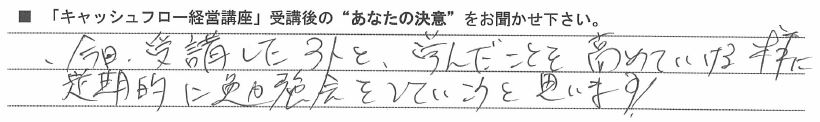 ■ 「キャッシュフロー経営講座」受講後の“あなたの決意”をお聞かせ下さい。
、今日、受講した3人と、学んだことを高めていける様に
定期的に勉強会をしていこうと思います!